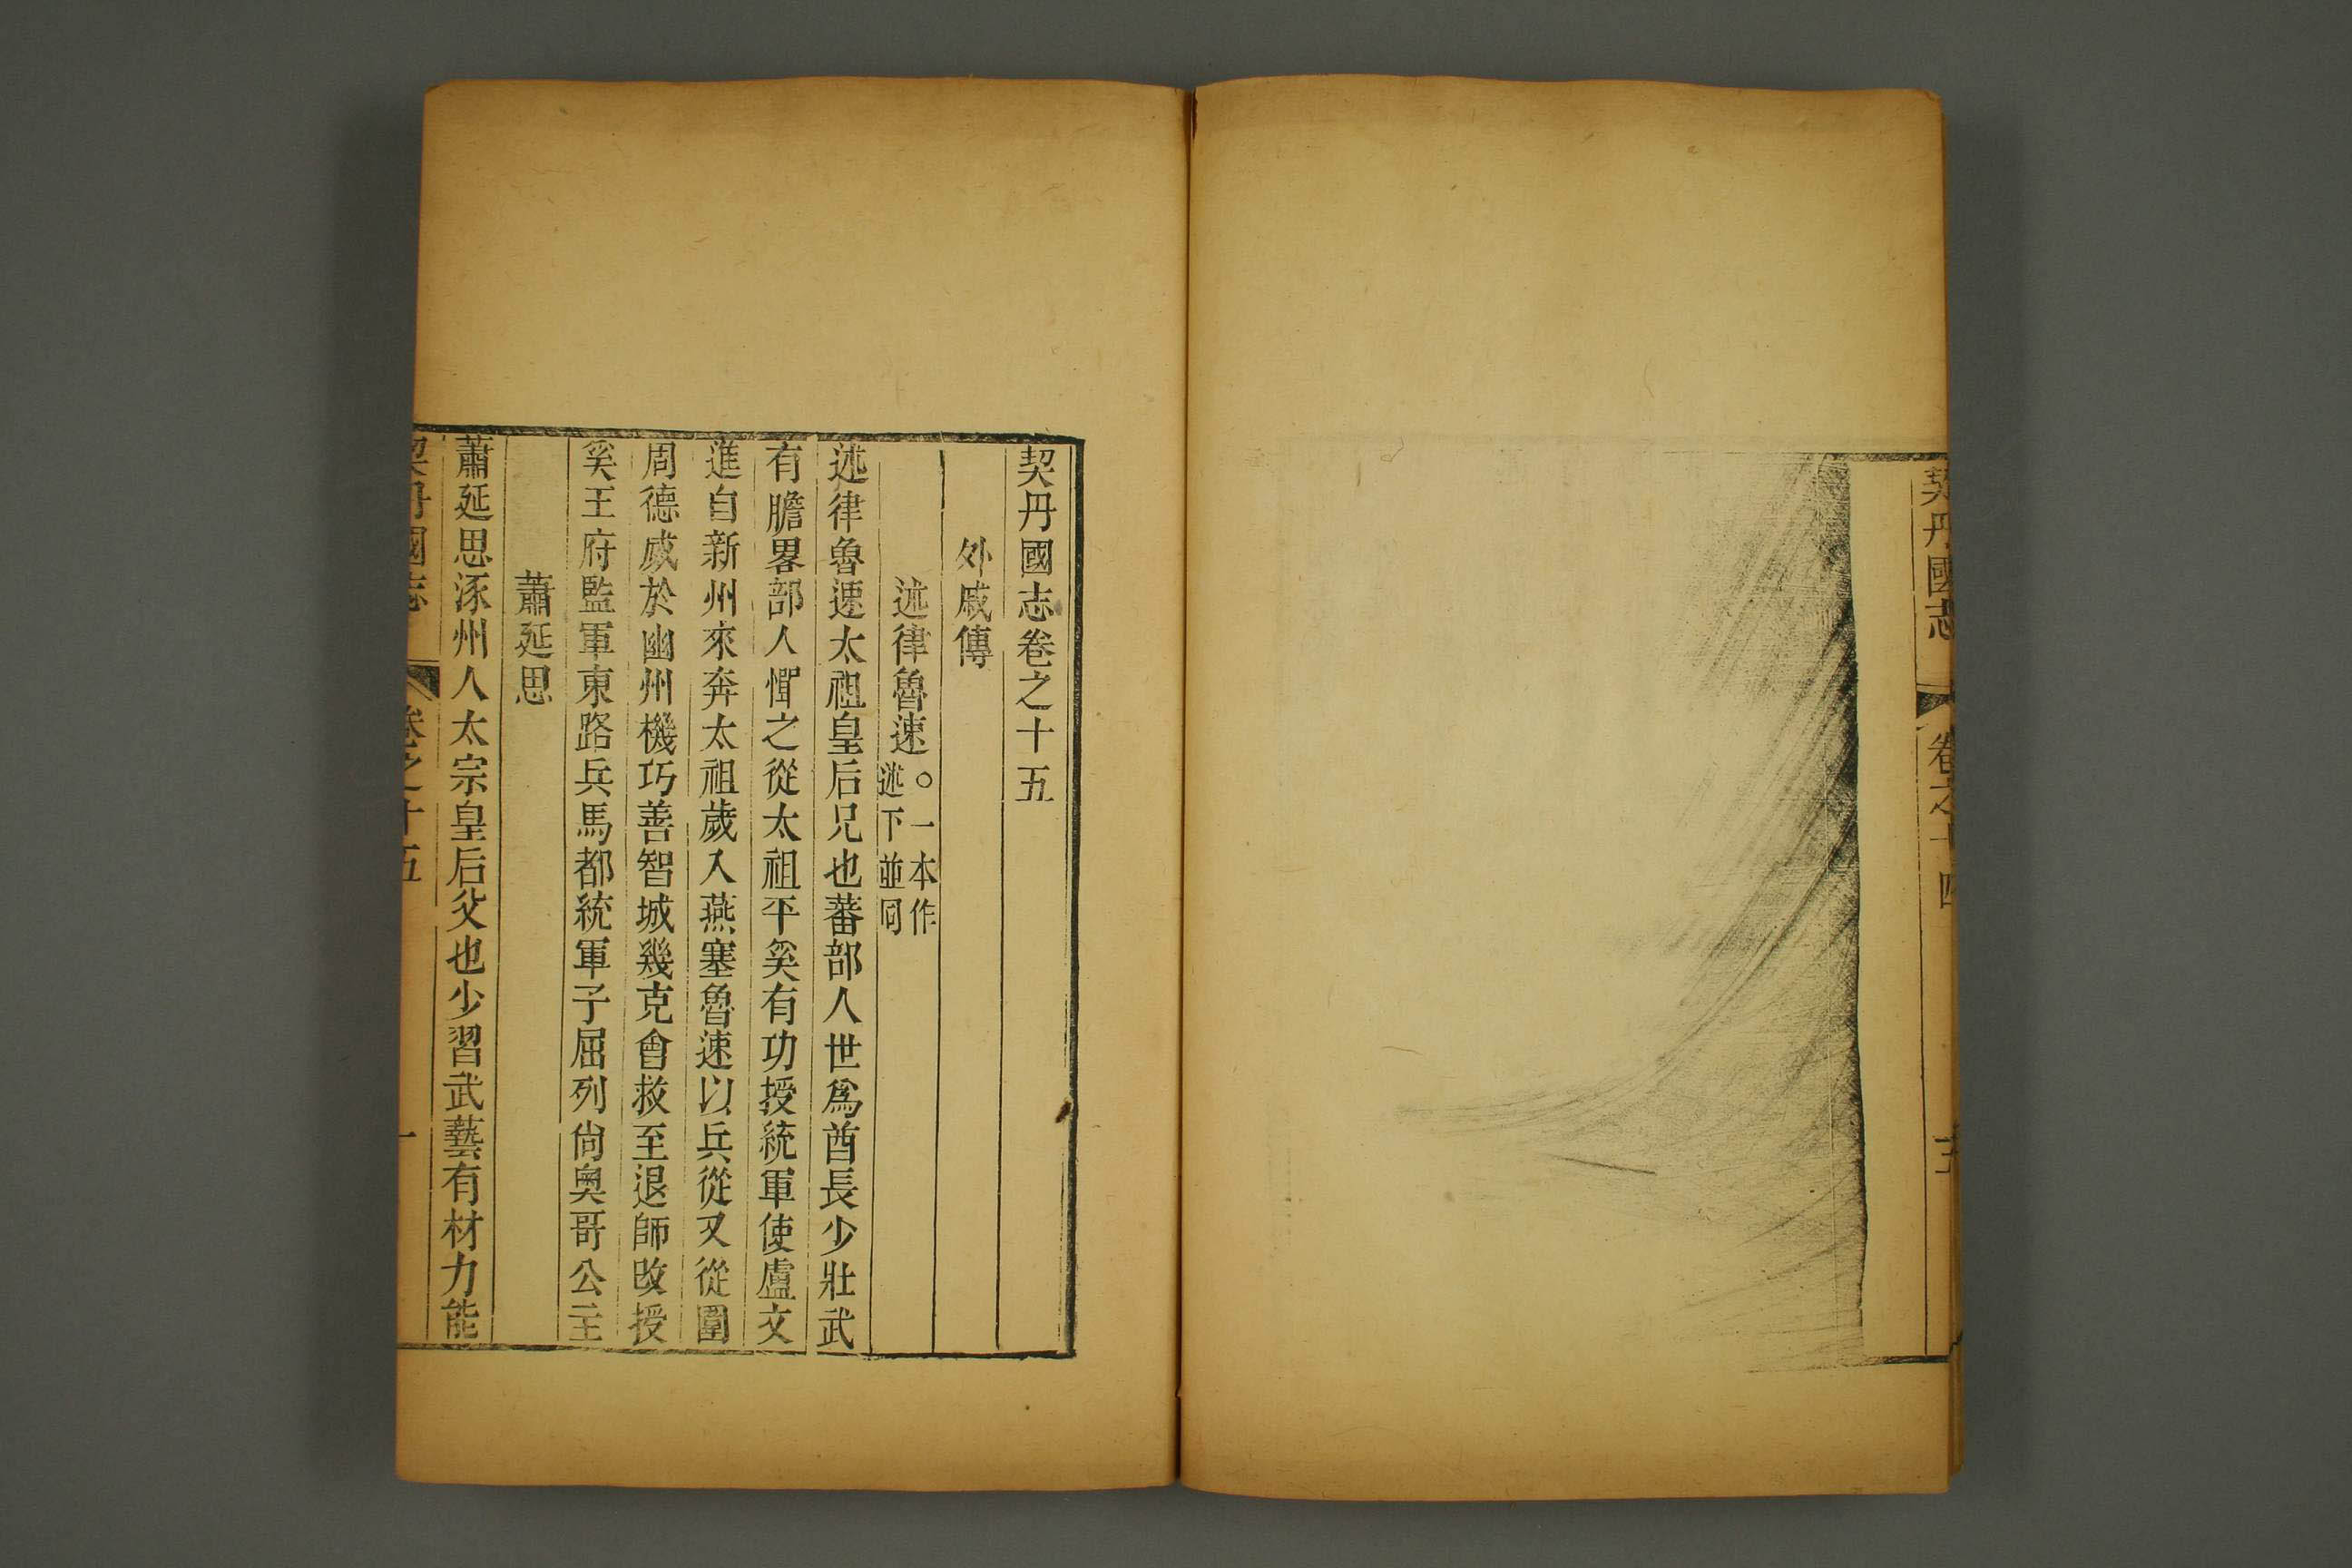 契丹國志
卷之十四
契丹國志卷之十五
外戚傳
述律魯速。一本作
遬下並同
述律魯速太祖皇后兄也蕃部人世爲酋長少壯武
有膽畧部人懼之從太祖平奚有功授統軍使盧文
進自新州來奔太祖歲入燕塞魯速以兵從又從圍
周德威於幽州機巧善智城幾克會救至退師改授
奚王府監軍東路兵馬都統軍子屈列尙奥哥公主
蕭延思
蕭延思涿州人太宗皇后父也少習武藝有材力能
契丹國志
卷之十五
一